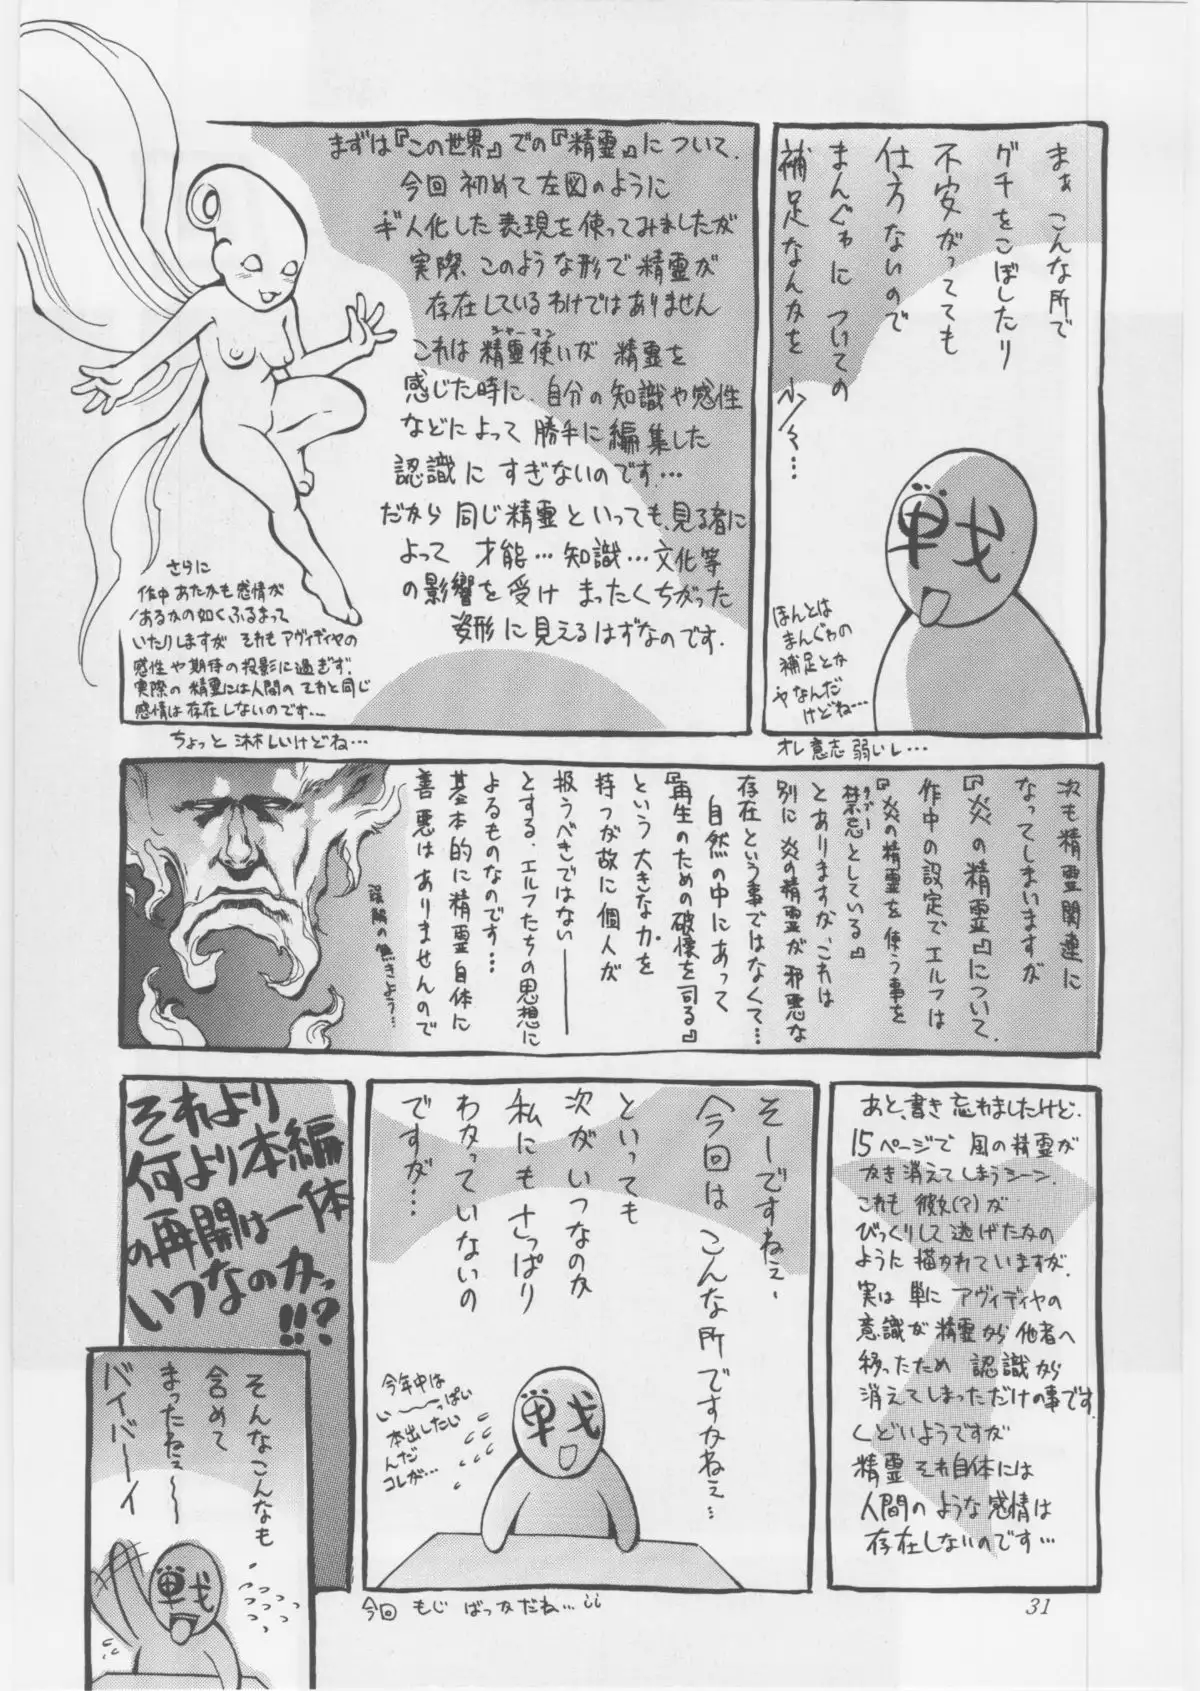 まぁ こんな所で
グチをこぼしたり
不安がってても
仕方ないので
まんぐゎに ついての
補足なんかを 少々…
戦
ほんとは
まんぐゎの
補足とか
ヤなんだ
けどね…
オレ意志弱いし…
まずは『この世界』での『精霊』について.
今回 初めて左図のように
ギ人化した表現を使ってみましたが
実際、このような形で精霊が
存在しているわけではありません
これは 精霊使いが 精霊を
シャーマン
感じた時に、自分の知識や感性
などによって勝手に編集した
認識に すぎないのです…
だから 同じ精霊といっても、見る者に
よって 才能…知識…文化等
の影響を受け まったくちがった
姿形に見えるはずなのです.
さらに
作中 あたかも感情が
あるかの如くふるまって
いたりしますが それもアヴィディヤの
感性や期待の投影に過ぎず.
実際の精霊には人間のそれと同じ
感情は存在しないのです…
ちょっと 淋しいけどね…
次も精霊関連に
なってしまいますが
『炎の精霊』について.
作中の設定でエルフは
『炎の精霊を使う事を
禁忌としている』
タブー
とありますが、これは
別に 炎の精霊が邪悪な
存在という事ではなくて…
自然の中にあって
『再生のための破壊を司る』
という大きな力を
持つが故に個人が
扱うべきではない――
とする、エルフたちの思想に
よるものなのです…
基本的に精霊自体に
善悪はありませんので
あと、書き忘れましたけど.
15ページで 風の精霊が
かき消えてしまうシーン.
これも 彼女(?)が
びっくりして逃げたかの
ように 描かれていますが.
実は 単に アヴィディヤの
意識が精霊から他者へ
移ったため 認識から
消えてしまっただけの事です.
くどいようですが
精霊それ自体には
人間のような感情は
存在しないのです…
そーですねぇ、
今回は こんな所ですかねぇ…
といっても
次がいつなのか
私にもさっぱり
わかっていないの
ですが…
今年中は
い〜っぱい
本出したい
んだ
コレが…
戦
今回 もじ ばっかだね…
それより
何より本編
の再開は一体
いつなのかっ
!!?
そんなこんなも
含めて
まったねェ〜〜
バイバーイ
戦
31